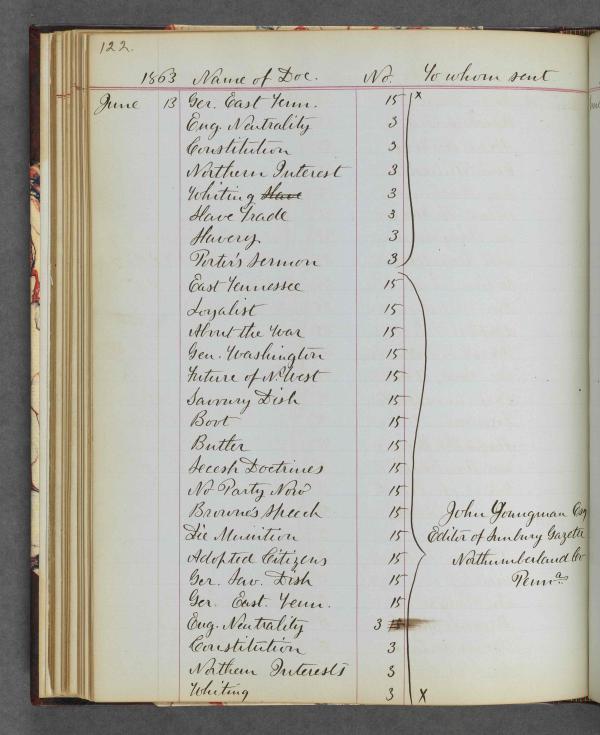 122.
1863 Name of Doc. No. To whom sent
June 13 Ger. East Tenn. 15 x
Eng. Neutrality 3
Constitution 3
Northern Interest 3
Whiting Slave 3
Slave Trade 3
Slavery 3
Porter's Sermon 3
East Tennessee 15
Loyalist 15
About the War 15
Gen. Washington 15
Future of N. West 15
Savoury Dish 15
Boot 15
Butler 15
Secesh Doctrines 15
No Party Now 15
Browne's Speech 15 John Youngman Esq
Die Munition 15 Editor of Sunbury Gazette
Adopted Citizens 15 Northumberland Co
Ger. Sav. Dish 15 Penna
Ger. East. Tenn. 15
Eng. Neutrality 3 15
Constitution 3
Northern Interests 3
Whiting 3 x